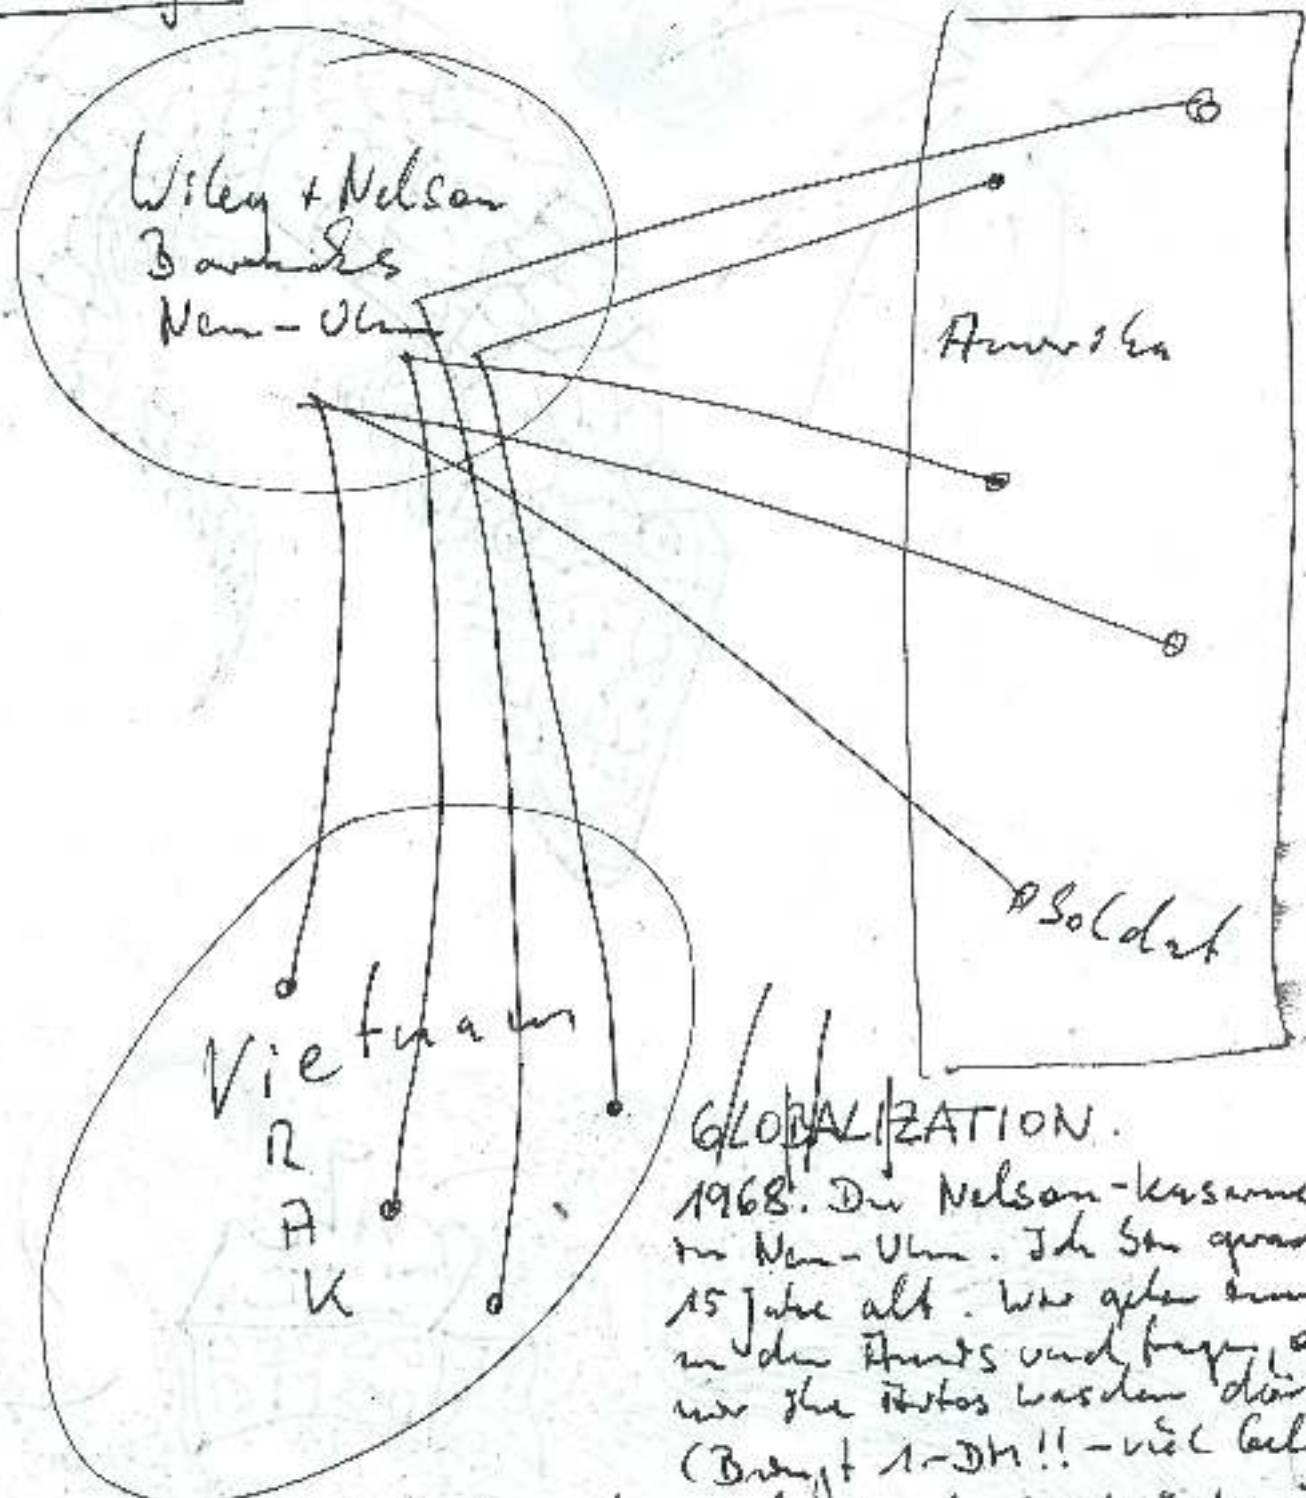 Wiley + Nelson
Barracks
Neu-Ulm
Amerika
Soldat
Vietnam
I
R
A
K
GLOBALIZATION.
1968. Die Nelson-Kaserne
in Neu-Ulm. Ich bin
15 Jahre alt. Wir gehen
zu den Amis und fragen,
wir ihre Autos waschen
(Bringt 1-DM!! - viel